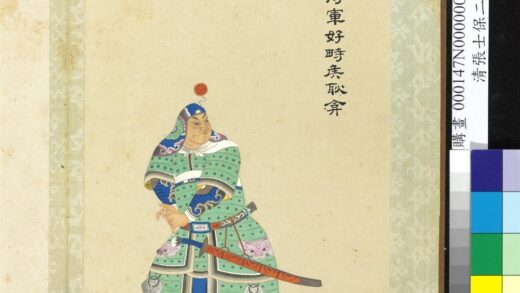 軍好時侯耿弇
購畫 000147N000000
清張士保二